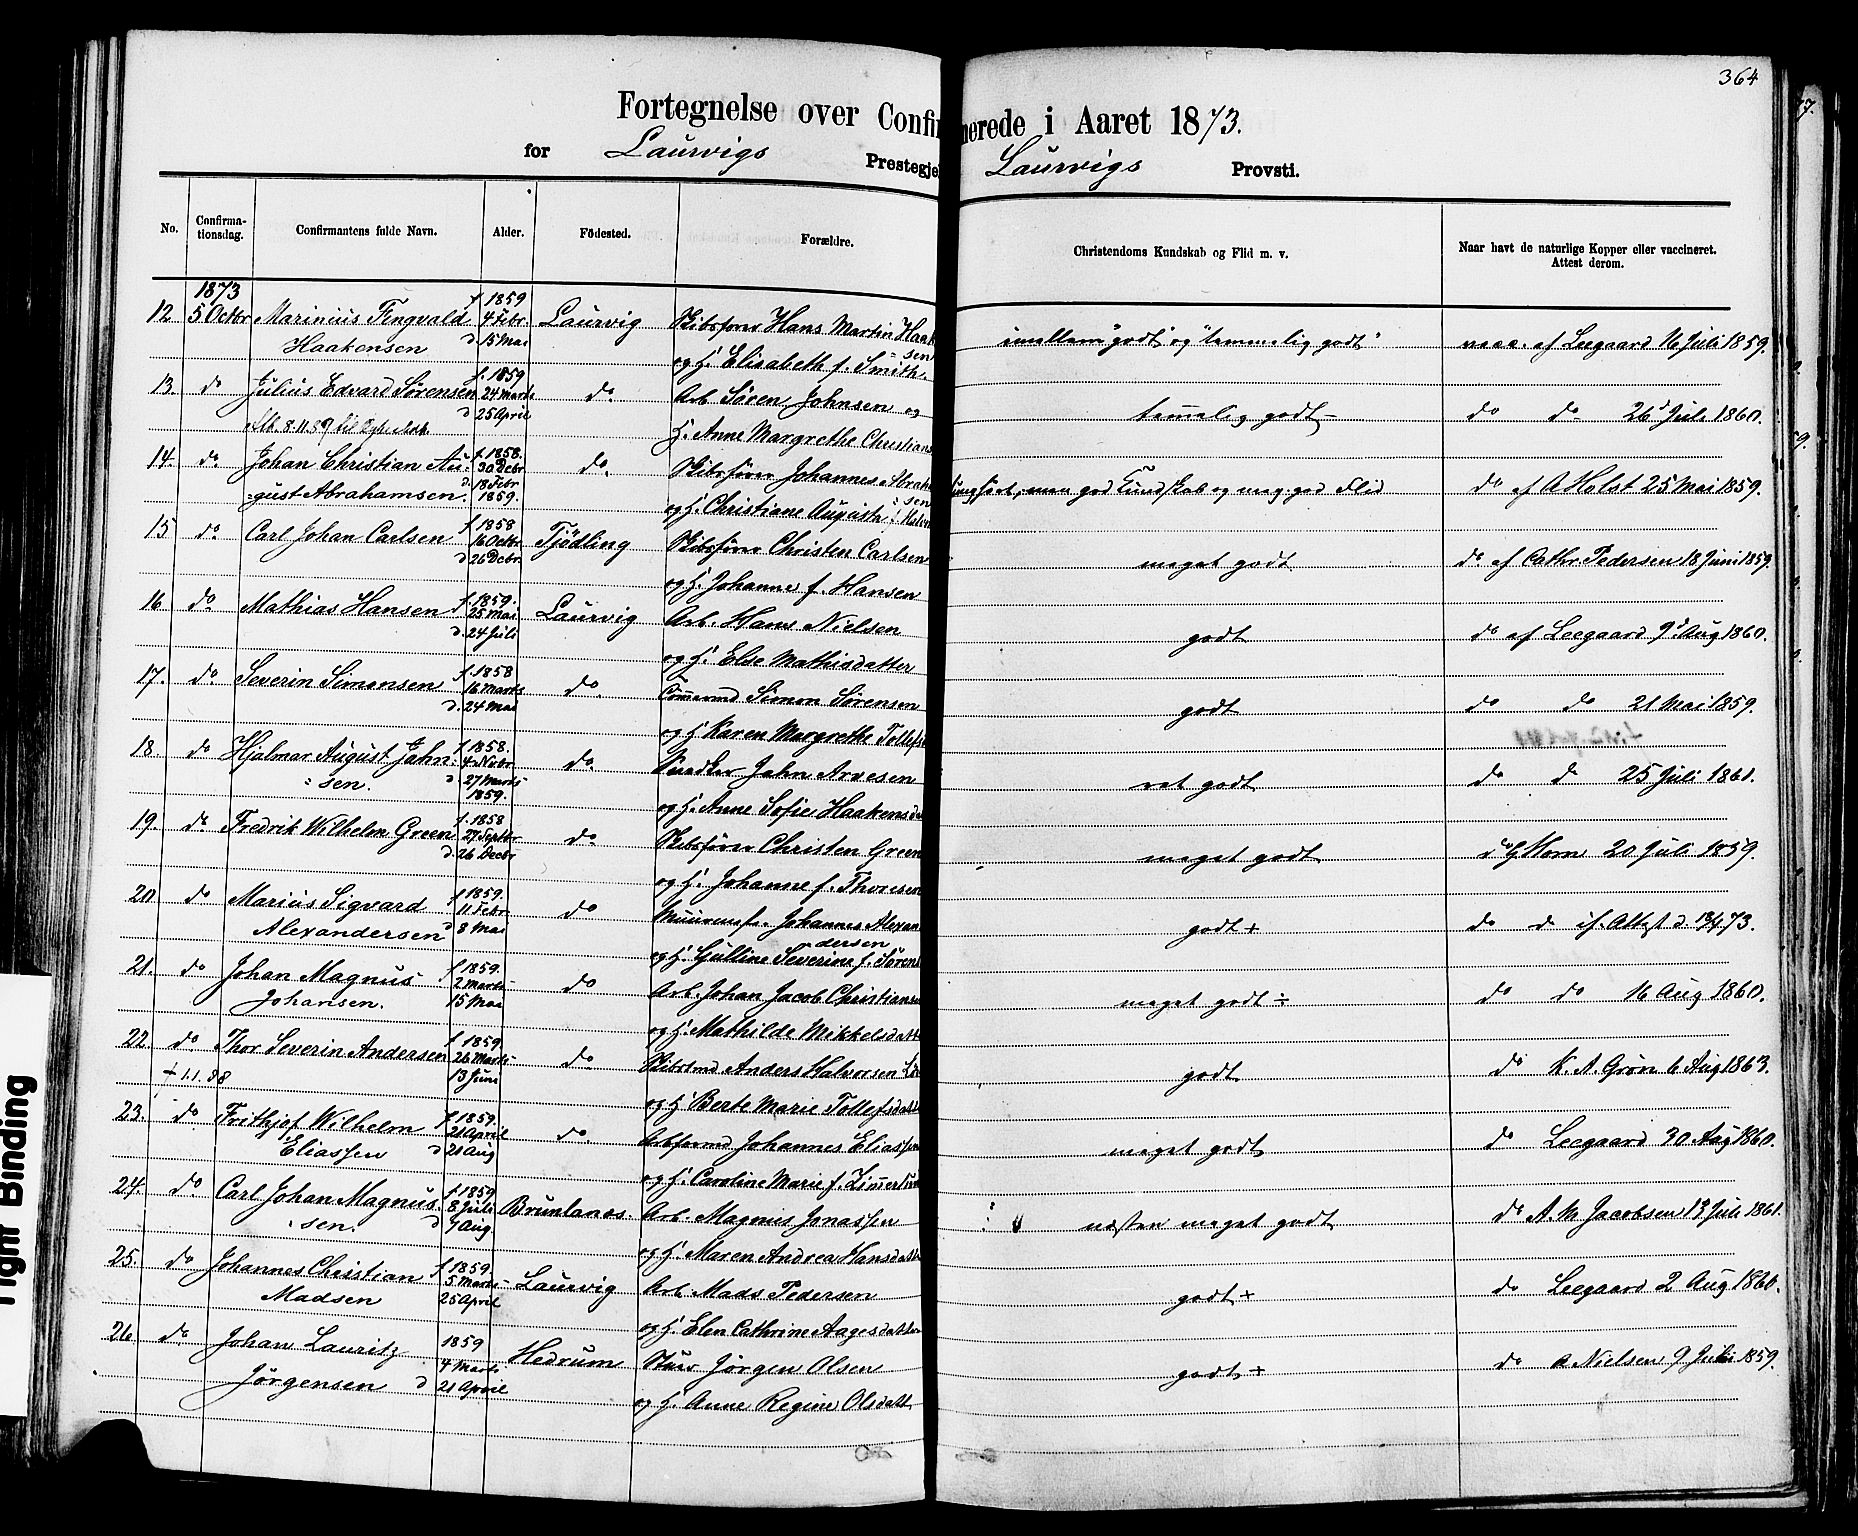 364
Fortegnelse over Confir merede i Aaret 1873.
for Laurvigs Prestegje Laurvigs Provsti.
No. Confirma-tionsdag. Confirmantens fulde Navn. Alder. Födested. Forældre. Christendoms Kundskab og Flid m. v. Naar havt de naturlige Kopper eller vaccineret. Attest derom.
1873 f 1859
12 5 Octbr Marinius Tingvald 4 Febr. Laurvig Skibsfører Hans Martin Haak imellem "godt" og "temmelig godt" vacc. af Leegaard 16 Juli 1859.
Haakensen d. 15 Mai sen
og H. Elisabeth f. Smith.
f. 1859
13. do Julius Edvard Sørensen 24 Marts do. Arb. Søren Johnsen og temelig godt do do 26 Juli 1860.
d 25 April
8.11.89 til H. Anne Margrethe Christians
f. 1858.
14. do. Johan Christian Au- 30 Decbr do. Skibsfører Johannes Abrah men god Kundskab og meg. god Flid do af A Holst 25 Mai 1859.
gust Abrahamsen. d. 18 Febr 1859. sen
og H. Christiane Augusta
f 1858
15 do. Carl Johan Carlsen 16 Octbr Tjödling Skibsfører Christen Carlsen meget godt do. af Cathr. Pedersen 18 Juni 1859.
d 26 Decbr.
og H. Johanne f. Hansen
f. 1859.
16 do Mathias Hansen 25 Mai Laurvig Arb. Hans Nielsen godt do af Leegaard 9 Aug 1860.
d. 24 Juli
og H. Else Mathisdatter
f. 1858
17. do Severin Simonsen 16 Marts do. Simon Sørensen godt do do 21 Mai 1859.
d. 24 Mai
og H Karen Margrethe Tollefs
f. 1858.
18. do Hjalmar August John- 4 Nvbr do. Snedker John Arvesen ret godt do d 25 Juli 1861.
sen. d. 27 Marts 1859.
og H. Anne Sofie Haakensda
f. 1858
19. do Fredrik Wilhelm Green 27 Septbr do Skibsfører Christen Green meget godt do G Horn 20 Juli 1859.
d. 26 Decbr
og H. Johanne f. Thorsen
f 1859.
20 do Marius Sigvard 11 Febr do Johannes Alexan godt + do d if. Attest d. 73.
Alexandersen d 8 Mai dersen
og H. Gulline Severine f. Sörens
f 1859.
21. do Johan Magnus 2 Marts do Arb. Johan Jacob Christianse meget godt ÷ do do 16 Aug 1860.
Johansen. 15 Mai
og H. Mathilde Mikkelsdatt
f 1859.
22. do Thor Severin Andersen 26 Marts do Skibstmd Anders Halvorsen godt do K. A. Grøn 6 Aug 1863.
+ 1.1.88 13 Juni
og H Berte Marie Tollefsdatt
f 1859.
23. do Frithjof Wilhelm 21 April do. Arbformd Johannes Eliassen meget godt do Leegaard 30 Aug 1860.
Eliassen d 21 Aug
og H. Caroline Marie f. Zim
f. 1859
24. do Carl Johan Magnus- 8 Juli Brunlanes. Arb. Magnus Jonassen næsten meget godt do A. M Jacobsen 13 Juli 1861.
sen. d 7 Aug.
og H. Maren Andrea Hansdatt
f 1859.
25. do Johannes Christian 5 Marts Laurvig Arb. Mads Pedersen godt + do Leegaard 2 Aug 1860.
Madsen 25 April
og H. Elen Cathrine Aagesdatte
1859
26 do Johan Lauritz 4 Marts Hedrum Jörgen Olsen godt + do Nielsen 9 Juli 1859.
Jörgensen d 21 April
og H. Anne Regine Olsdatt
Tight Binding